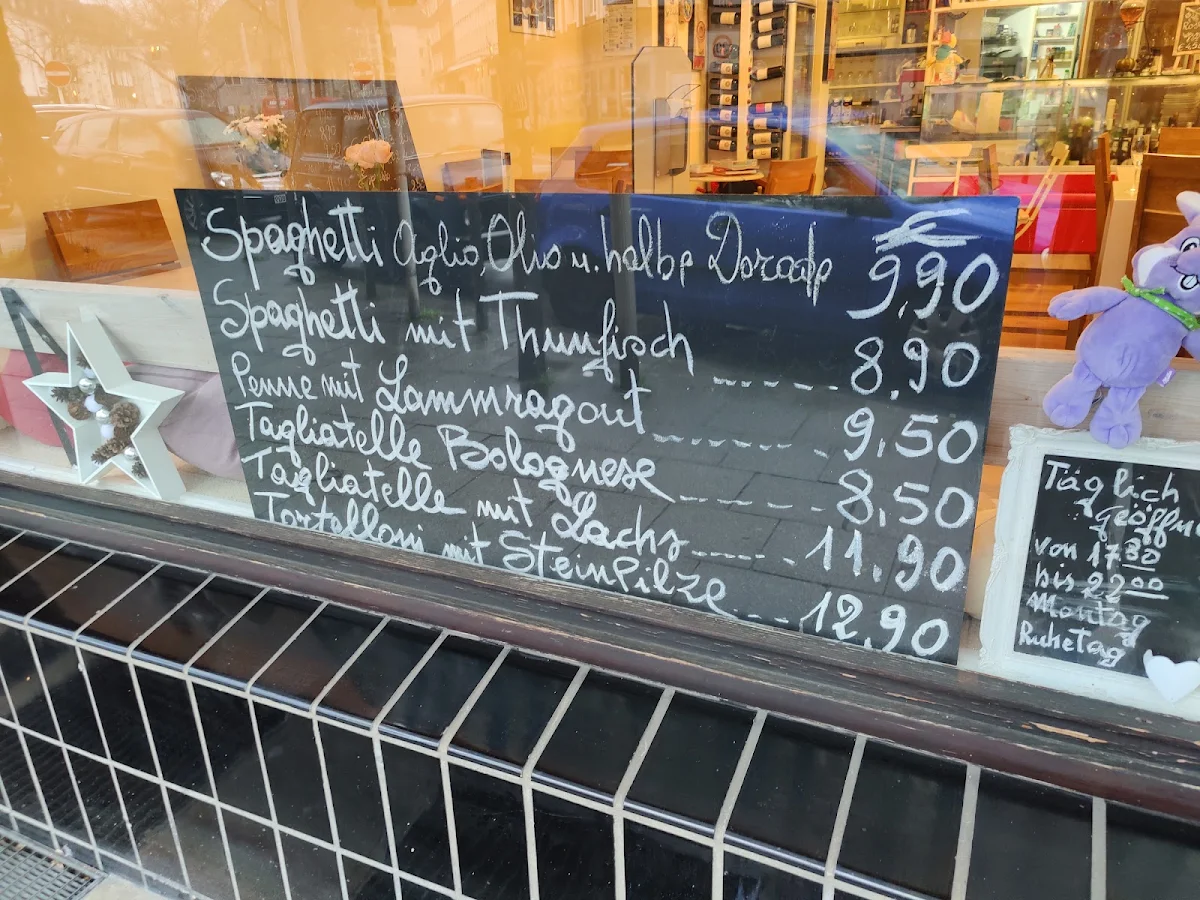 €
Spaghetti Aglio, Olio u. halbe Dorade 9,90
Spaghetti mit Thunfisch ------ 8,90
Penne mit Lammragout ------- 9,50
Tagliatelle Bolognese ------ 8,50
Tagliatelle mit Lachs ----- 11,90
Tortelloni mit Steinpilze ---- 12,90
Täglich
Geöffn
von 17 30
bis 22 00
Montag
Ruhetag